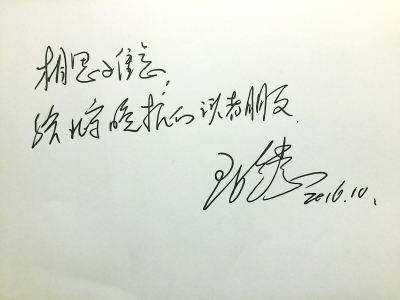 相思才难忘,
给北京晚报的读者朋友.
2016.10.